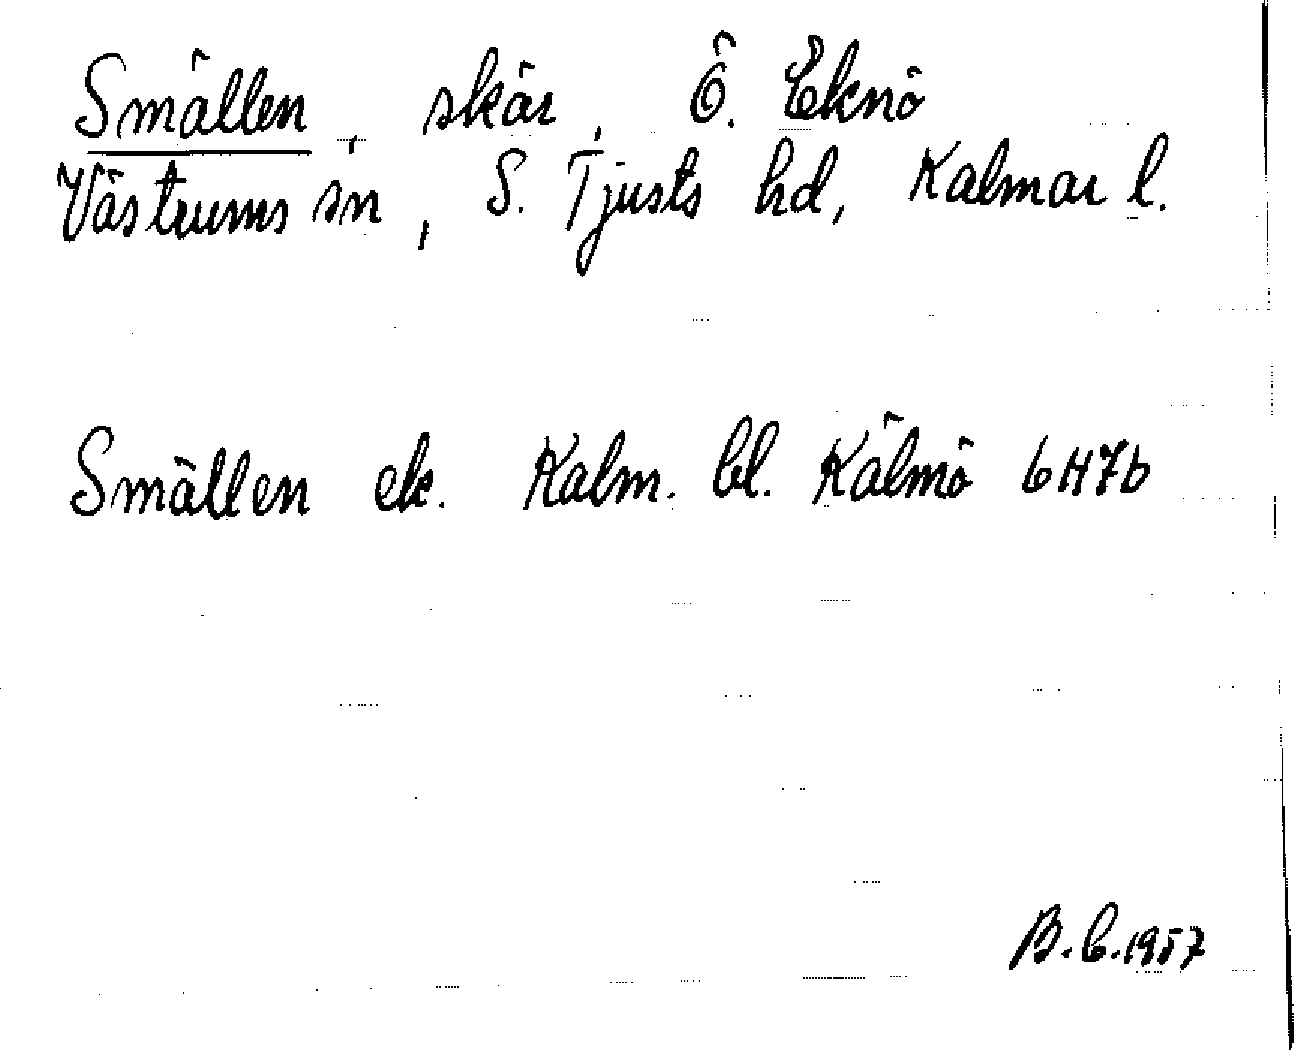 Smällen, skär, Ö. Eknö
Västrums sn, S. Tjusts hd, Kalmar l.
Smällen ek. Kalm. bl. Kälmö 6H7b
B.C.1957